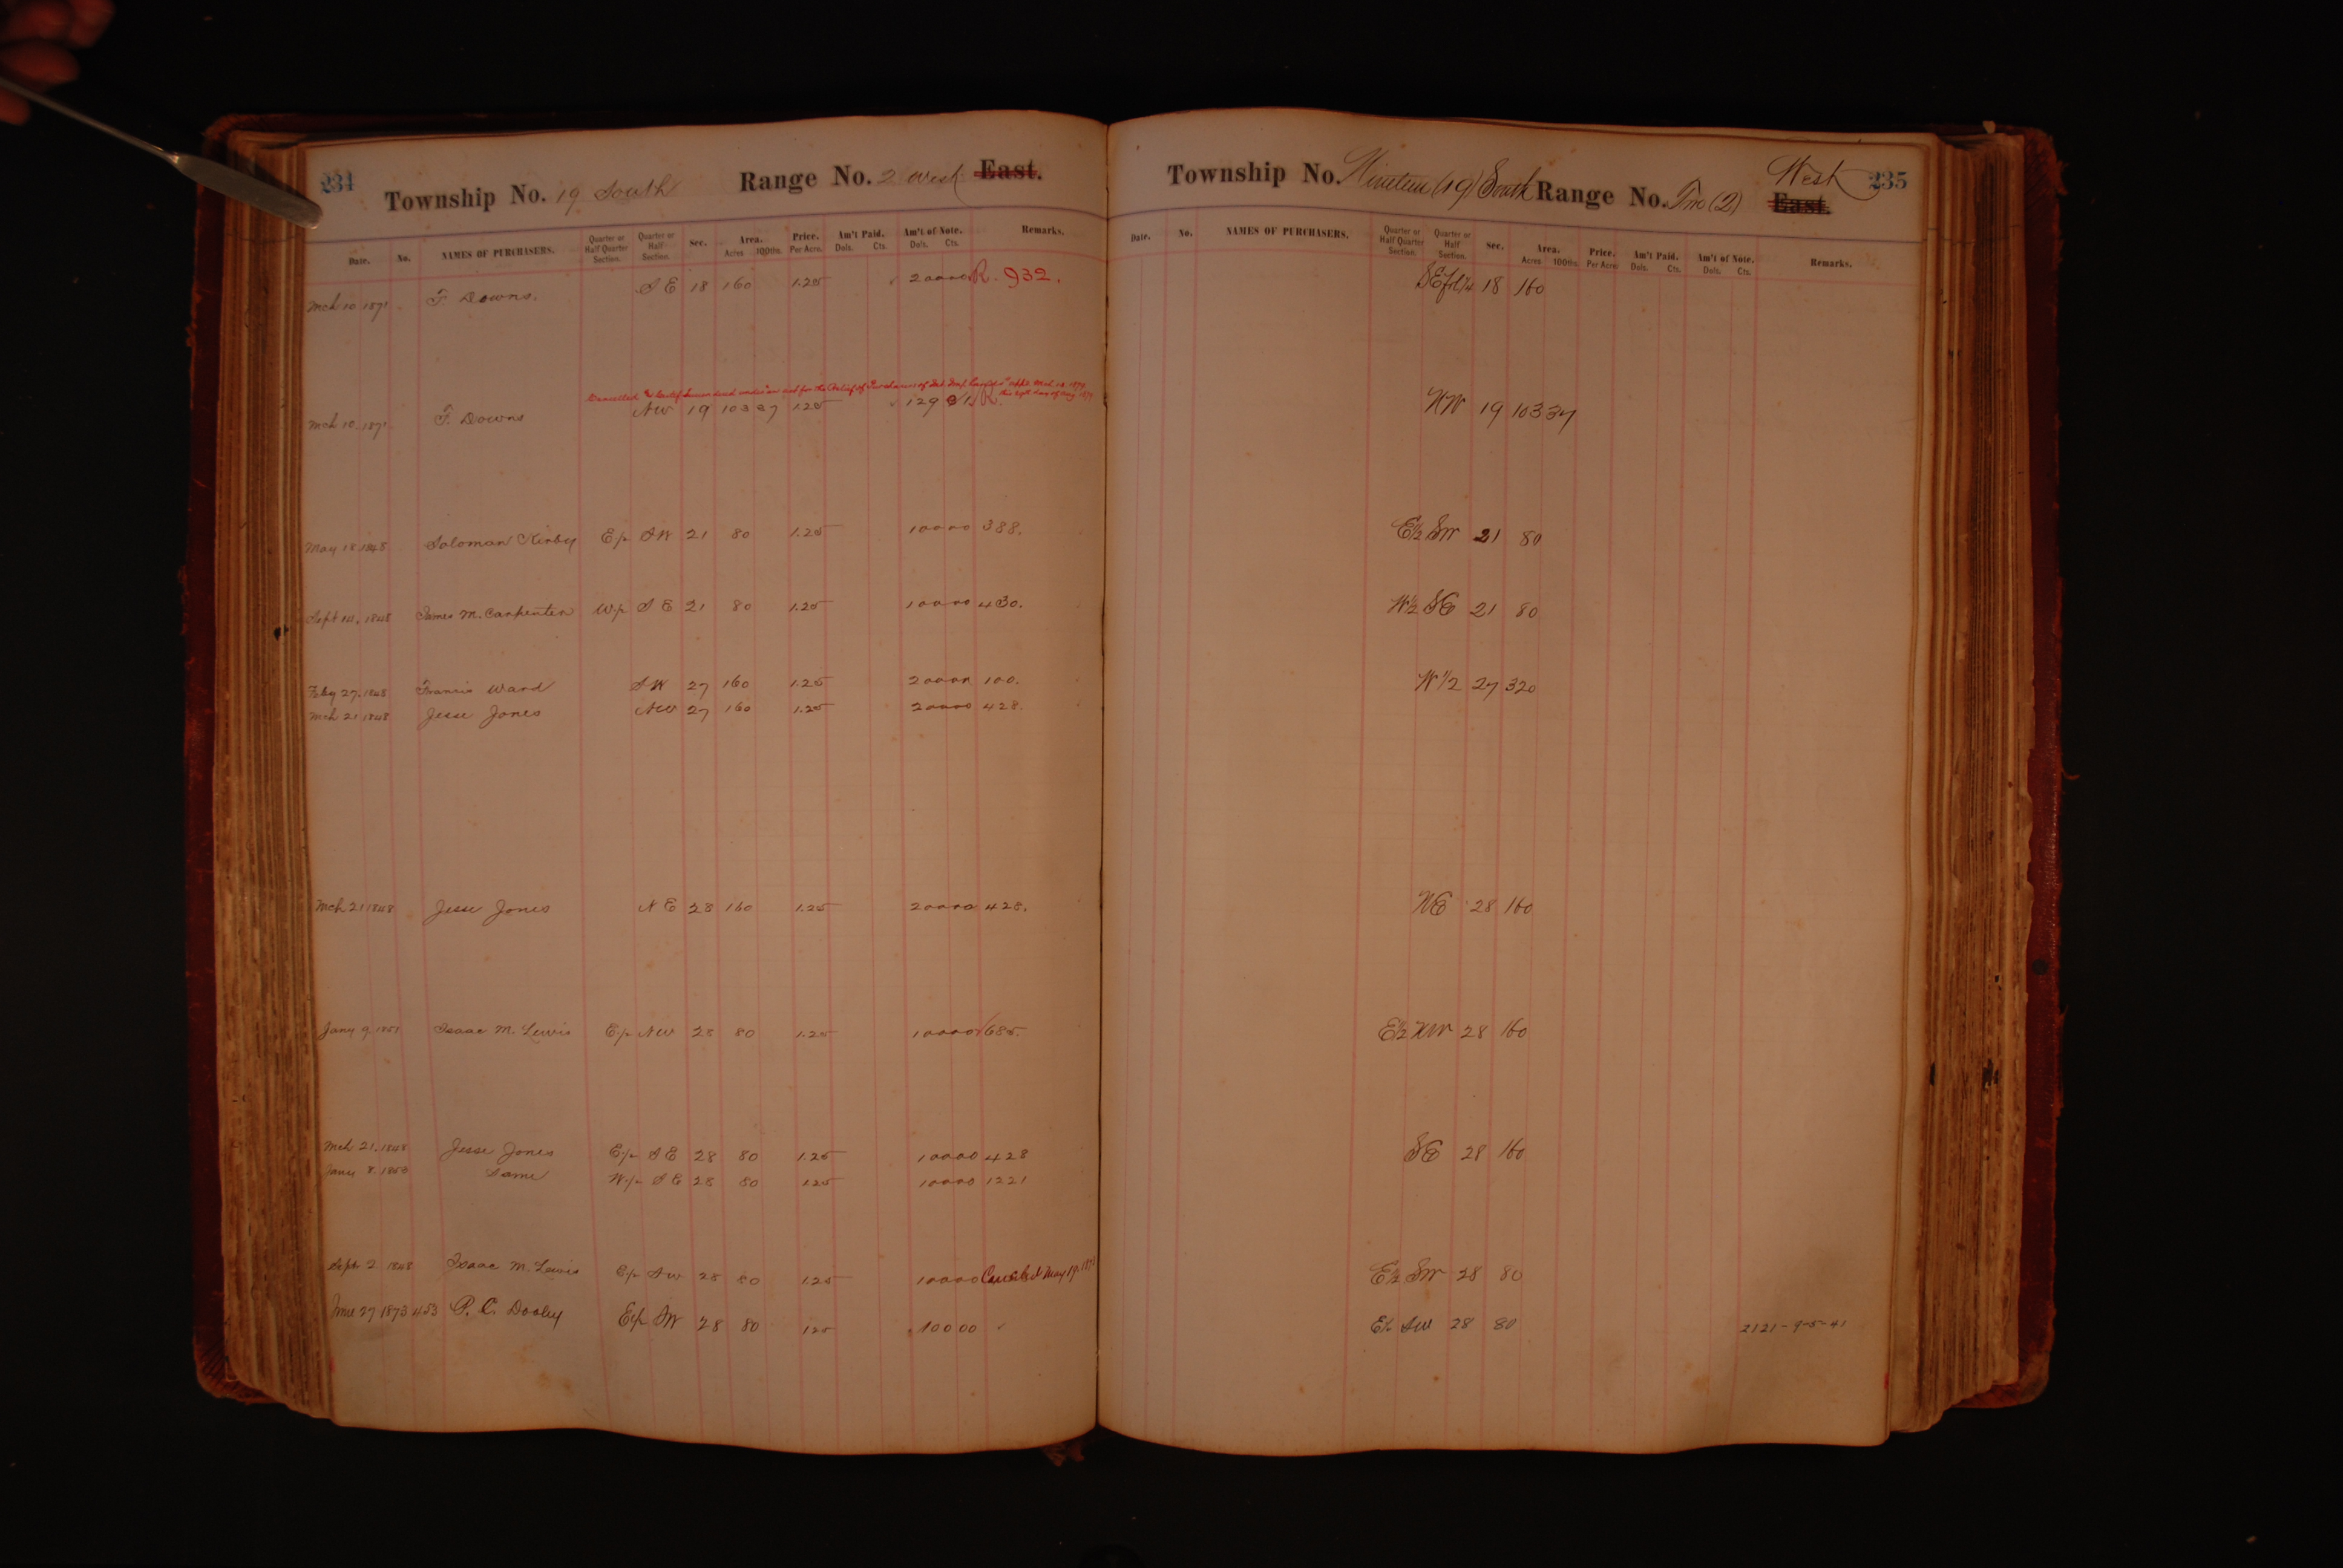 234
Township No. 19 South Range No. 2 West East.
Date. No. NAMES OF PURCHASERS. Quarter or Half Quarter Section. Quarter or Half Section. Sec. Area. Acres 100ths. Price. Per Acre. Am't Paid. Dols. Cts. Am't of Note. Dols. Cts. Remarks.
Mch 10 1871 F. Downs. S E 18 160 1.25 200 00 R. 932.
Cancelled & Certif Surrendered under an act for the Relief of Purchasers of Int. Imp. Lands appd Mch 1879 this day of Aug 1879
Mch 10 1871 F. Downs NW 19 103 37 1.25 129 21 R.
May 18 1848 Soloman Kirby E½ SW 21 80 1.25 100 00 388.
Sept 14, 1848 James M. Carpenter W½ S E 21 80 1.25 100 00 430.
Feby 27, 1848 Francis Ward SW 27 160 1.25 200 00 100.
Mch 21 1848 Jesse Jones NW 27 160 1.25 200 00 428.
Mch 21 1848 Jesse Jones N E 28 160 1.25 200 00 428.
Jany 9 1851 Isaac M. Lewis E½ NW 28 80 1.25 100 00 685.
Mch 21, 1848 Jesse Jones E½ S E 28 80 1.25 100 00 428
Jany 8, 1853 Same W½ S E 28 80 1.25 100 00 1221
Sept 2 1848 Isaac M. Lewis E½ SW 28 80 1.25 100 00 Canceled May 19, 1871
June 27 1873 453 P. C. Dooley E½ SW 28 80 1.25 100 00
Township No. Nineteen (19) South Range No. Two (2) West East. 235
Date. No. NAMES OF PURCHASERS. Quarter or Half Quarter Section. Quarter or Half Section. Sec. Area. Acres 100ths. Price. Per Acre Am't Paid. Dols. Cts. Am't of Note. Dols. Cts. Remarks.
SE frl ¼ 18 160
NW 19 103 37
E½ SW 21 80
W½ SE 21 80
W ½ 27 320
NE 28 160
E½ NW 28 160
SE 28 160
E½ SW 28 80
E½ SW 28 80 2121-9-5-41